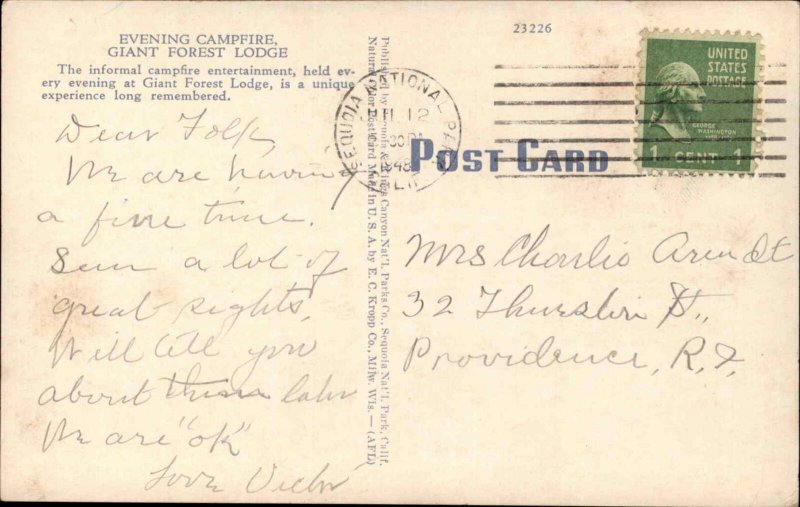 EVENING CAMPFIRE,
GIANT FOREST LODGE
The informal campfire entertainment, held ev-
ery evening at Giant Forest Lodge, is a unique
experience long remembered.
Dear Folks,
We are havin
a fine time.
Seen a lot of
great sights,
Will tell you
about them later
We are "ok"
Love
Published by Sequoia & Kings Canyon Nat'l. Parks Co., Sequoia Nat'l. Park, Calif.
Natural Color Post Card Made in U. S. A. by E. C. Kropp Co., Milw. Wis.—(AFL)
23226
SEQUOIA NATIONAL PARK
JUL 12
POST CARD
UNITED
STATES
POSTAGE
GEORGE
WASHINGTON
1 CENT 1
Mrs Charlie Arendt
32 St.,
Providence, R.I.